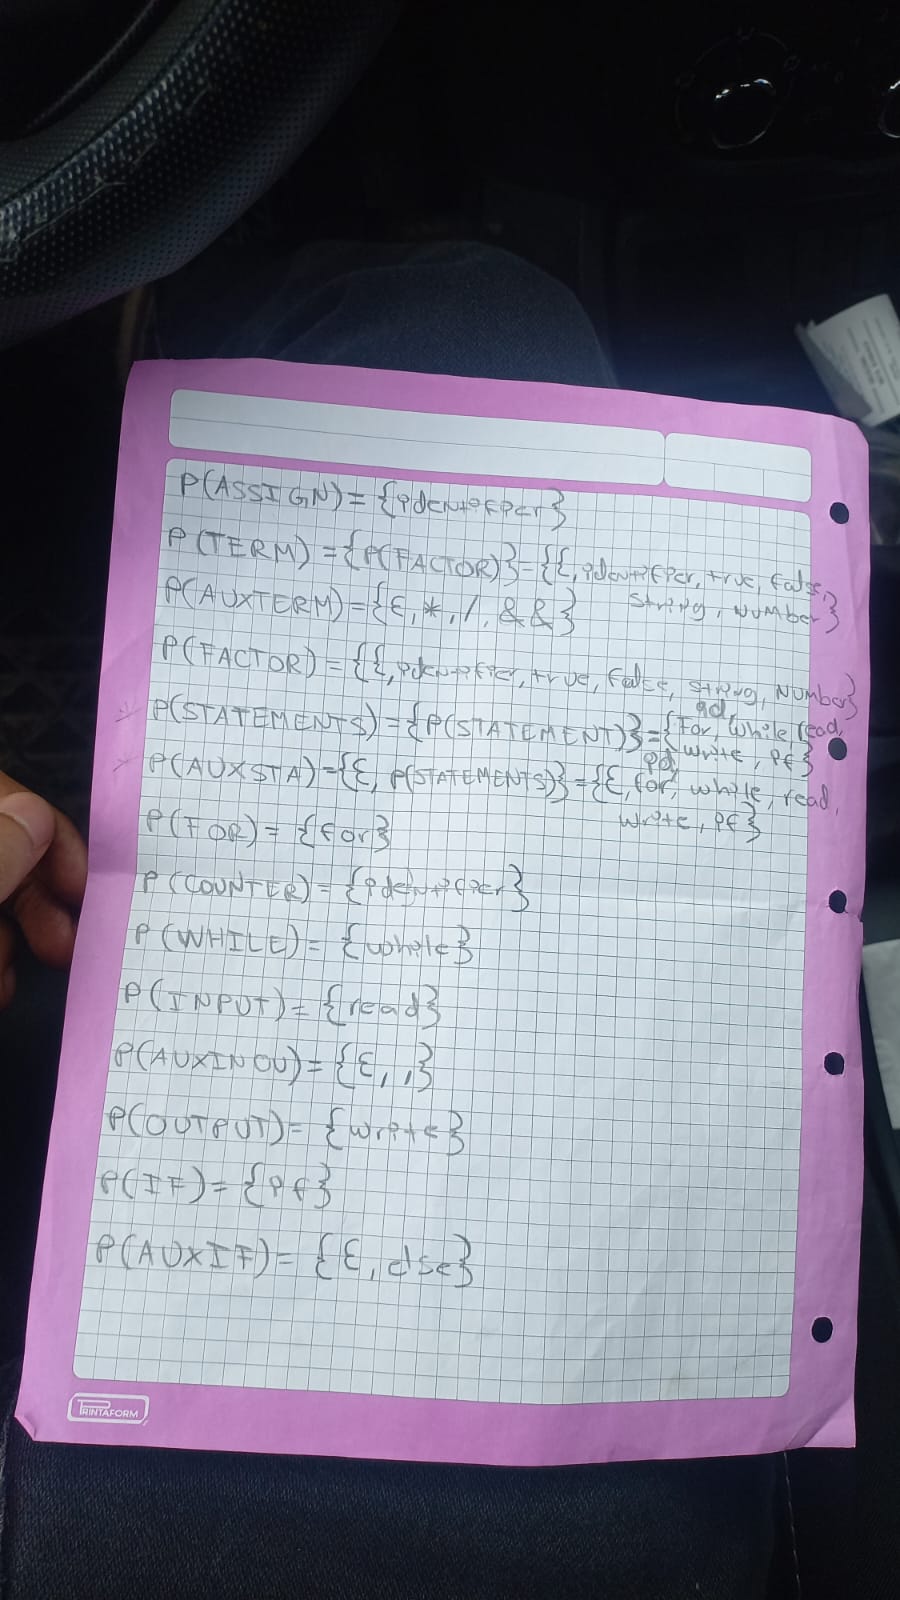 P(ASSIGN) = {identifier}
P(TERM) = {P(FACTOR)} = {{, identifier, true, false,
string, number}
P(AUXTERM) = {ε, *, /, &&}
P(FACTOR) = {{, identifier, true, false, string, number}
P(STATEMENTS) = {P(STATEMENT)} = {for, while, read,
write, if}
P(AUXSTA) = {ε, P(STATEMENTS)} = {ε, for, while, read,
write, if}
P(FOR) = {for}
P(COUNTER) = {identifier}
P(WHILE) = {while}
P(INPUT) = {read}
P(AUXINOU) = {ε, ,}
P(OUTPUT) = {write}
P(IF) = {if}
P(AUXIF) = {ε, else}
PRINTAFORM